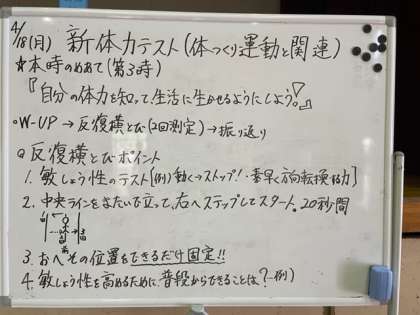 4/18(月) 新体力テスト(体つくり運動と関連)
☆本時のめあて(第3時)
『自分の体力を知って、生活に生かせるようにしよう。』
○W-UP → 反復横とび(2回測定) → 振り返り
◎反復横とびポイント
1. 敏しょう性のテスト[例)動く→ストップ!・素早く方向転換する力]
2. 中央ラインをまたいで立って、右へステップしてスタート。20秒間
3. おへその位置をできるだけ固定!!
4. 敏しょう性を高めるために普段からできることは?(例)